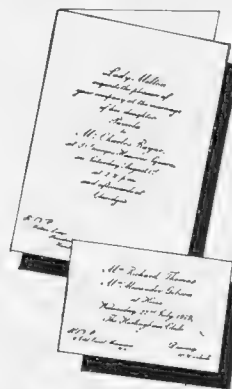 Lady Milton
requests the pleasure of
your company at the marriage
of her daughter
Pamela
to
Mr Charles Rogers
at St Georges Hanover Square
on Saturday August 1st
at 2 p.m.
and afterwards at
Claridges
R.S.V.P.
Mr Richard Thomas
Mr Alexander Gibson
at Home
Wednesday 22nd July
The Hurlingham Club
R.S.V.P.
Dancing